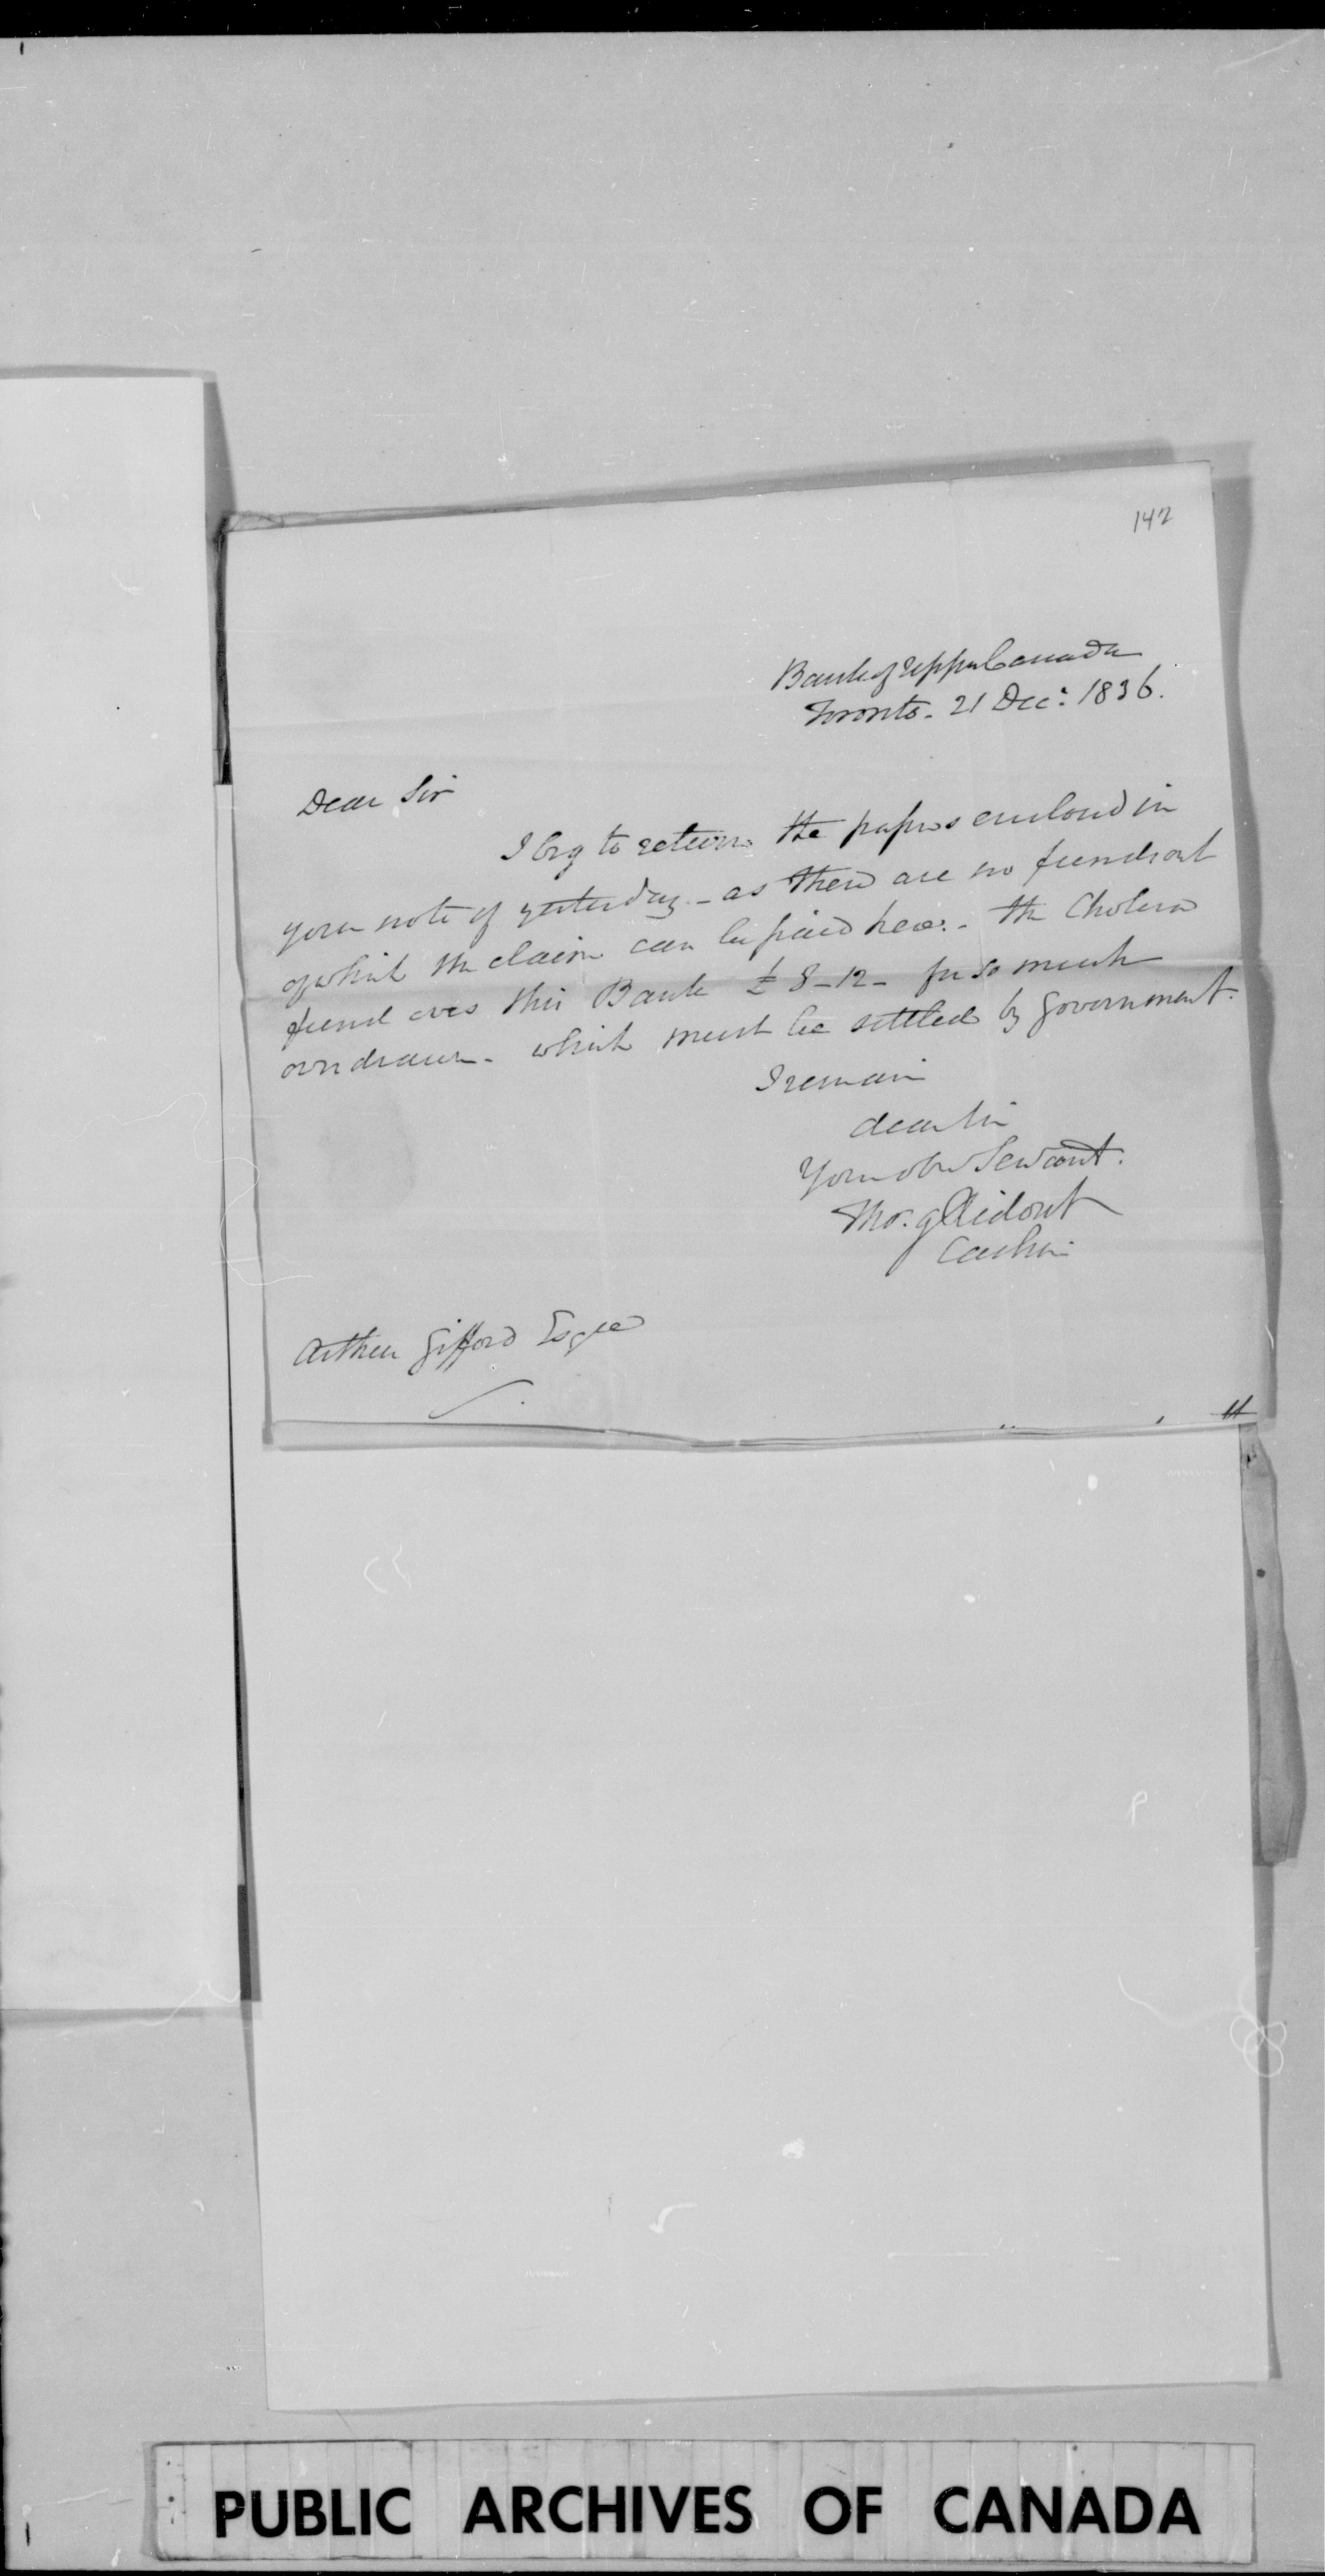 142
Bank of Upper Canada
Toronto. 21 Dec: 1836.
Dear Sir
I beg to return the papers enclosed in
your note of yesterday - as there are no funds out
of which the claim can be paid here. - The Cholera
fund owes this Bank £8-12- for so much
overdrawn - which must be settled by Government.
I remain
dear Sir
Your obt Servant.
Tho. G Ridout
Cashier
Arthur Gifford Esqre
PUBLIC ARCHIVES OF CANADA